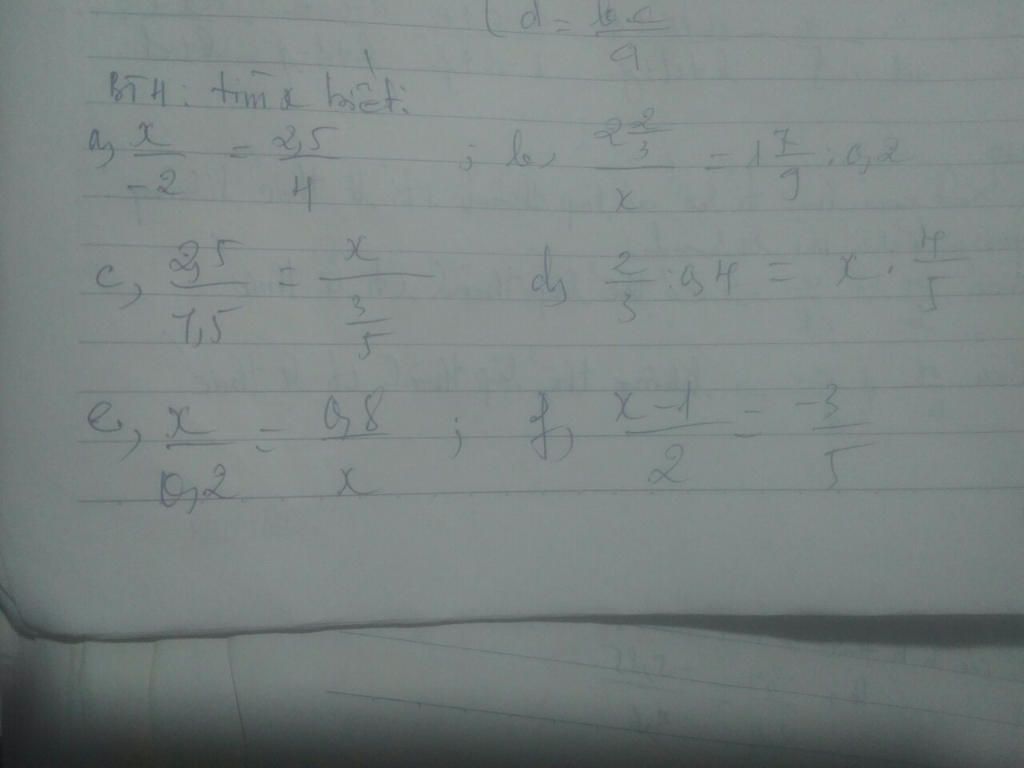 d = b.c/a
BT4: tìm x biết:
a, x/-2 = 2,5/4 ; b, 2 2/3/x = 1 7/9 : 0,2
c, 2,5/7,5 = x/3/5 d, 2/3 : 0,4 = x . 4/5
e, x/0,2 = 0,8/x ; f, x-1/2 = -3/5